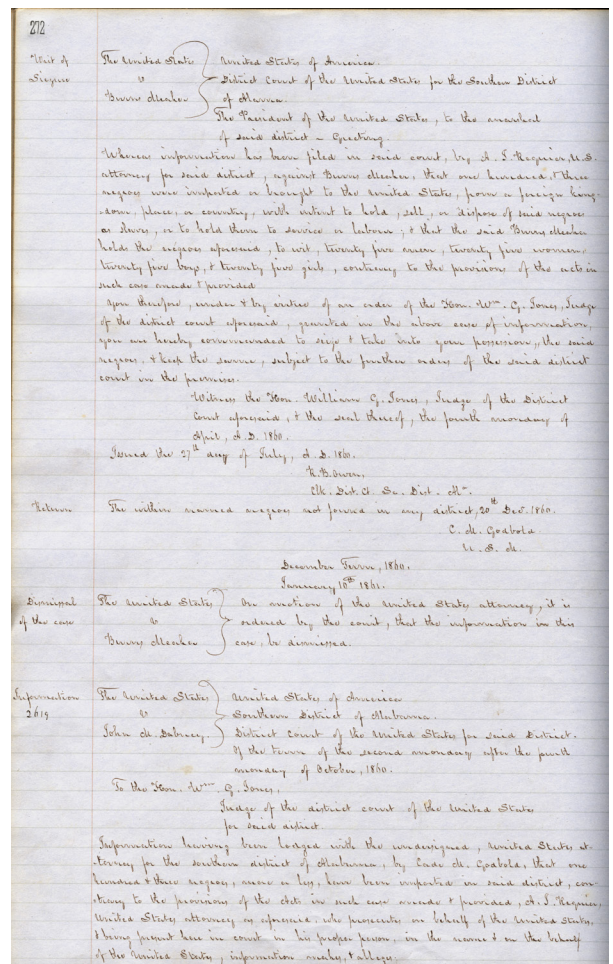 272
Writ of
Seizure
The United States
v
Burns Meaher
United States of America.
District Court of the United States for the Southern District
of Alabama.
The President of the United States, to the marshal
of said district – Greeting.
Whereas information has been filed in said court, by A. J. Requier, U.S.
attorney for said district, against Burns Meaher, that one hundred & three
negroes were imported or brought to the United States, from a foreign king-
-dom, place, or country, with intent to hold, sell, or dispose of said negroes
as slaves, or to hold them to service or labour; & that the said Burns Meaher
holds the negroes aforesaid, to wit, twenty five men, twenty five women,
twenty five boys, & twenty five girls, contrary to the provisions of the acts in
such case made & provided
You therefore, under & by virtue of an order of the Hon. Wm. G. Jones, Judge
of the district court aforesaid, granted in the above case of information,
you are hereby commanded to seize & take into your possession, the said
negroes, & keep the same, subject to the further orders of the said district
court in the premises.
Witness the Hon. William G. Jones, Judge of the District
Court aforesaid, & the seal thereof, the fourth monday of
April, A.D. 1860.
Issued the 27th day of July, A.D. 1860.
R. B. Owen,
Clk. Dist. Ct. So. Dist. Ala.
Return
The within named negroes not found in my district, 20th Dec. 1860.
C. M. Godbold
U. S. M.
December Term, 1860.
January 10th 1861.
Dismissal
of the case
The United States
v
Burns Meaher
On motion of the United States attorney, it is
ordered by the court, that the information in this
case, be dismissed.
Information
2619
The United States
v
John M. Dabney
United States of America
Southern District of Alabama.
District Court of the United States for said District.
Of the term of the second monday after the fourth
monday of October, 1860.
To the Hon. Wm. G. Jones,
Judge of the district court of the United States
for said district.
Information having been lodged with the undersigned, United States at-
-torney for the southern district of Alabama, by Cade M. Godbold, that one
hundred & three negroes, more or less, have been imported in said district, con-
-trary to the provisions of the acts in such case made & provided, A. J. Requier,
United States attorney as aforesaid, who prosecutes on behalf of the United States,
& being present here in court in his proper person, in the name & on the behalf
of the United States, information makes, & alleges,